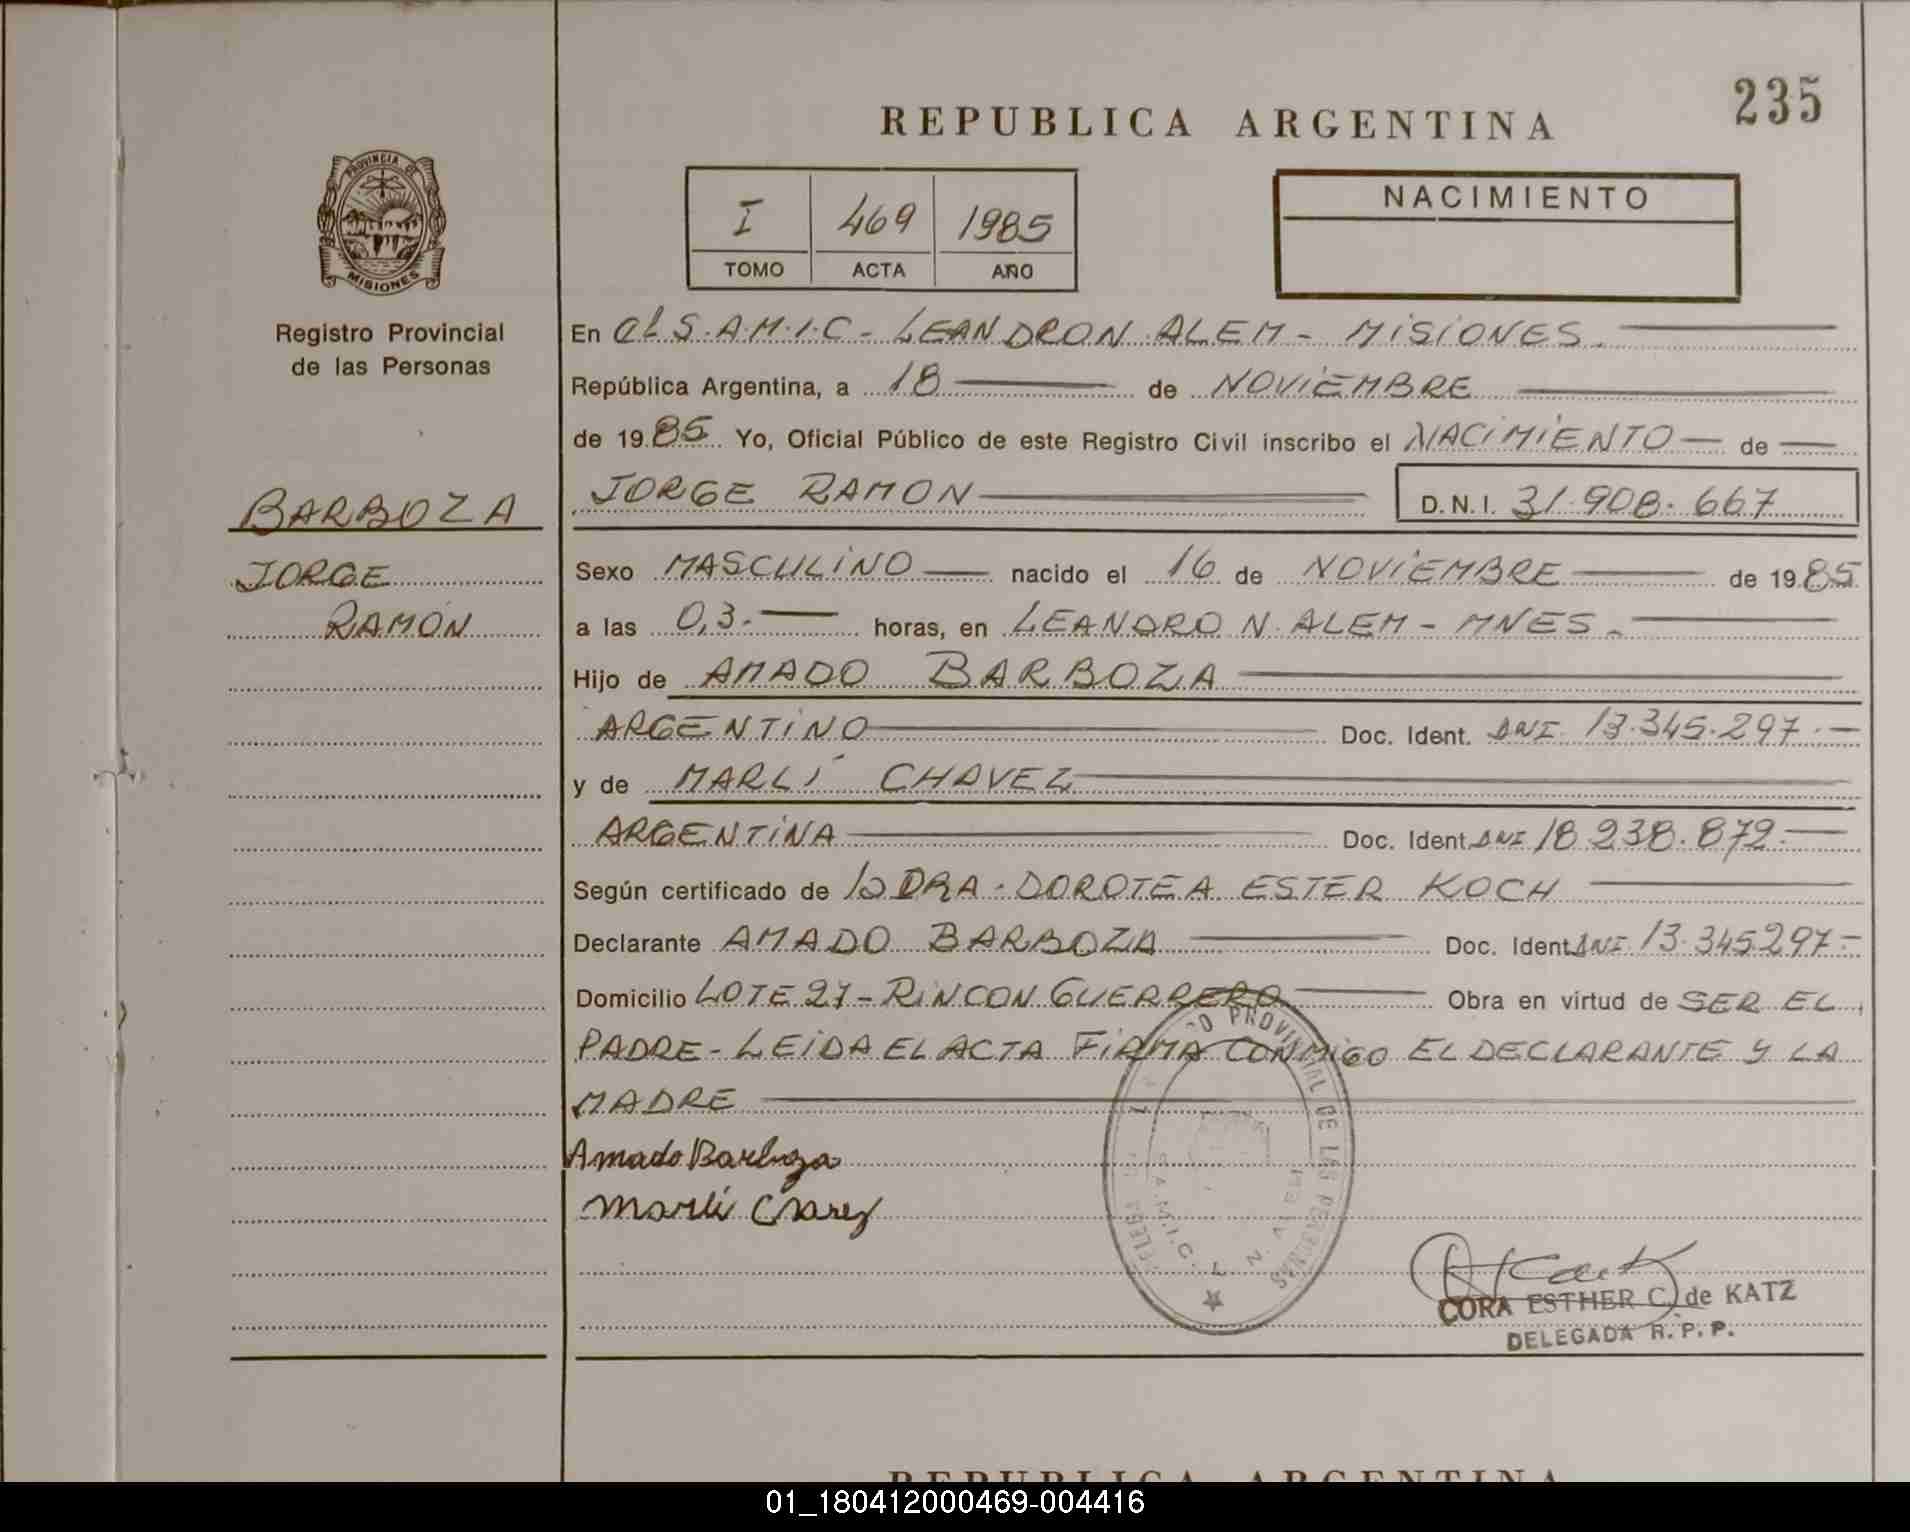 235
REPUBLICA ARGENTINA
PROVINCIA DE
MISIONES
Registro Provincial
de las Personas
I 469 1985
TOMO ACTA AÑO
NACIMIENTO
BARBOZA
JORGE
RAMÓN
En el S.A.M.I.C - LEANDRO N ALEM - MISIONES.
República Argentina, a 18 de NOVIEMBRE
de 1985 Yo, Oficial Público de este Registro Civil inscribo el NACIMIENTO de
JORGE RAMON D.N.I. 31.908.667
Sexo MASCULINO nacido el 16 de NOVIEMBRE de 1985
a las 0,3.- horas, en LEANDRO N. ALEM - MNES.
Hijo de AMADO BARBOZA
ARGENTINO Doc. Ident. DNI 13.345.297.-
y de MARLÍ CHAVEZ
ARGENTINA Doc. Ident. DNI 18.238.872.-
Según certificado de la DRA. DOROTEA ESTER KOCH
Declarante AMADO BARBOZA Doc. Ident. DNI 13.345.297.-
Domicilio LOTE 27 - RINCON GUERRERO Obra en virtud de SER EL
PADRE - LEIDA EL ACTA FIRMA CONMIGO EL DECLARANTE Y LA
MADRE
Amado Barboza
Marli Chavez
PROVINCIAL DE LAS PERSONAS
S.A.M.I.C. L. N. ALEM
CORA ESTHER C. de KATZ
DELEGADA R. P. P.
REPUBLICA ARGENTINA
01_180412000469-004416